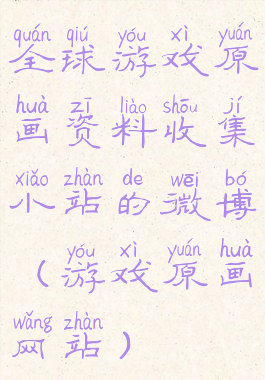 quán qiú yóu xì yuán
全球游戏原
huà zī liào shōu jí
画资料收集
xiǎo zhàn de wēi bó
小站的微博
yóu xì yuán huà
（游戏原画
wǎng zhàn
网站）